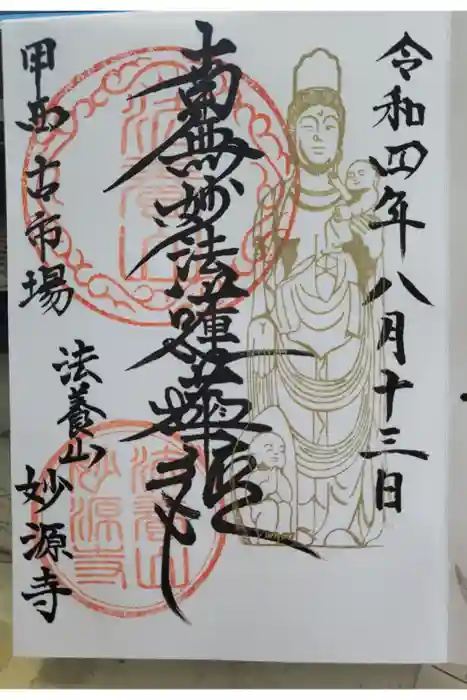 令和四年八月十三日
南無妙法蓮華経
甲西古市場
法養山
妙源寺
法養山
妙源寺